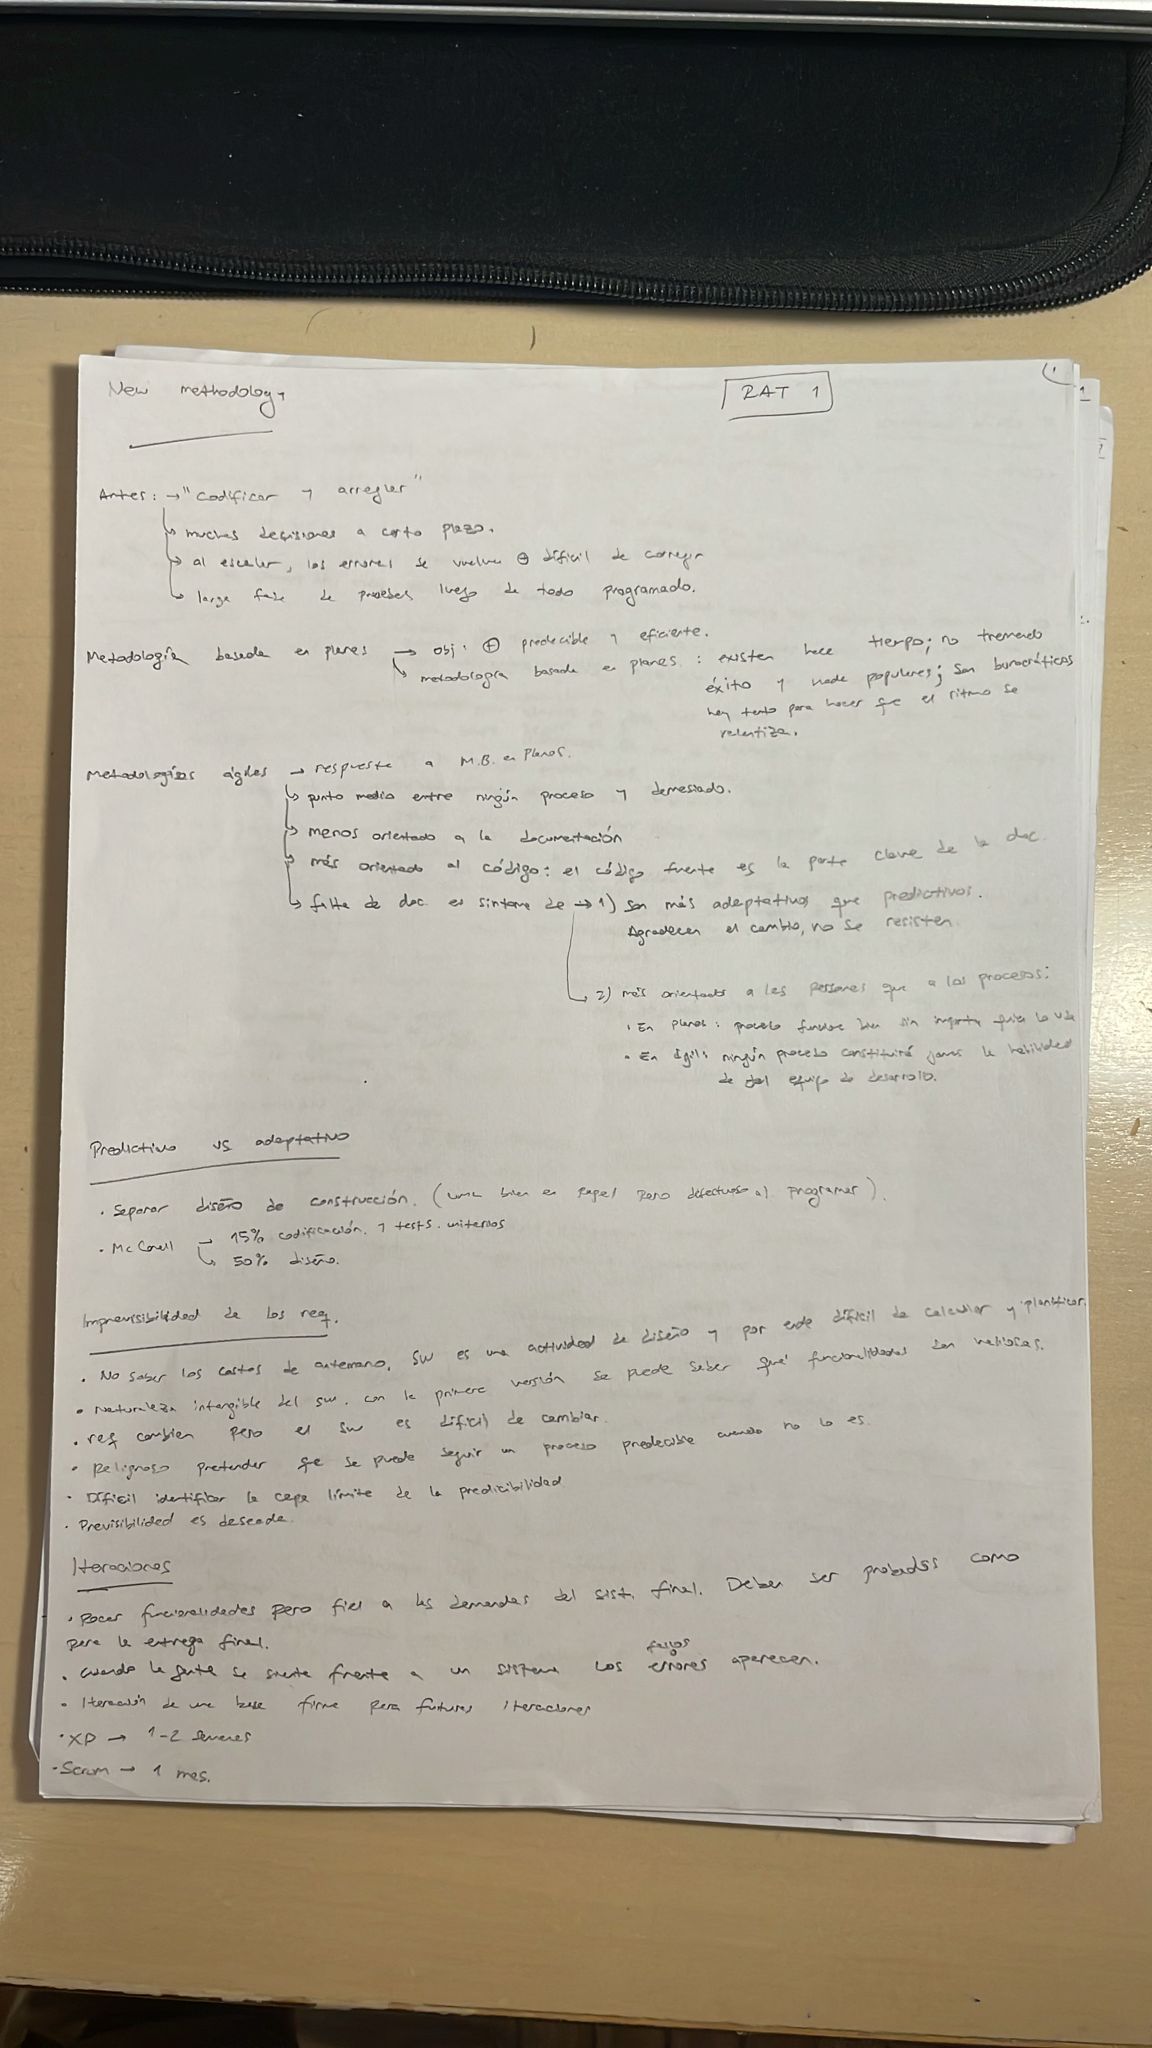 New methodology
RAT 1
1
Antes: → "Codificar y arreglar"
→ muchas decisiones a corto plazo.
→ al escalar, los errores se vuelve ⊕ difícil de corregir
→ larga fase de pruebas luego de todo programado.
Metodología basada en planes → obj: ⊕ predecible y eficiente.
→ metodología basada en planes: existen hace tiempo; no tremendo
éxito y nada populares; son burocráticas
hay tanto para hacer que el ritmo se
relentiza.
Metodologías ágiles → respuesta a M.B. en planos.
→ punto medio entre ningún proceso y demasiado.
→ menos orientado a la documentación
→ más orientado al código: el código fuente es la parte clave de la doc.
→ falta de doc. es síntoma de → 1) Son más adaptativos que predictivos.
Agradecen el cambio, no se resisten.
→ 2) más orientados a las personas que a los procesos:
• En planos: proceso funcione bien sin importar quien lo use
• En ágil: ningún proceso constituirá jamás la habilidad
de del equipo de desarrollo.
Predictivo vs adaptativo
• Separar diseño de construcción. (UML bien en papel pero defectuoso al programar).
• McConell → 15% codificación y tests unitarios
→ 50% diseño.
Imprevisibilidad de los req.
• No saber los costos de antemano. SW es una actividad de diseño y por ende difícil de calcular y planificar.
• Naturaleza intangible del sw. con la primera versión se puede saber qué funcionalidades son valiosas.
• req cambien pero el sw es difícil de cambiar.
• Peligroso pretender que se puede seguir un proceso predecible cuando no lo es.
• Difícil identificar la capa límite de la predicibilidad
• Previsibilidad es deseada.
Iteraciones
• pocas funcionalidades pero fiel a las demandas del sist. final. Deben ser probados como
para la entrega final.
• cuando la gente se sienta frente a un sistema los errores aparecen.
fallos
• Iteración da una base firme para futuras iteraciones
• XP → 1-2 semanas
• Scrum → 1 mes.